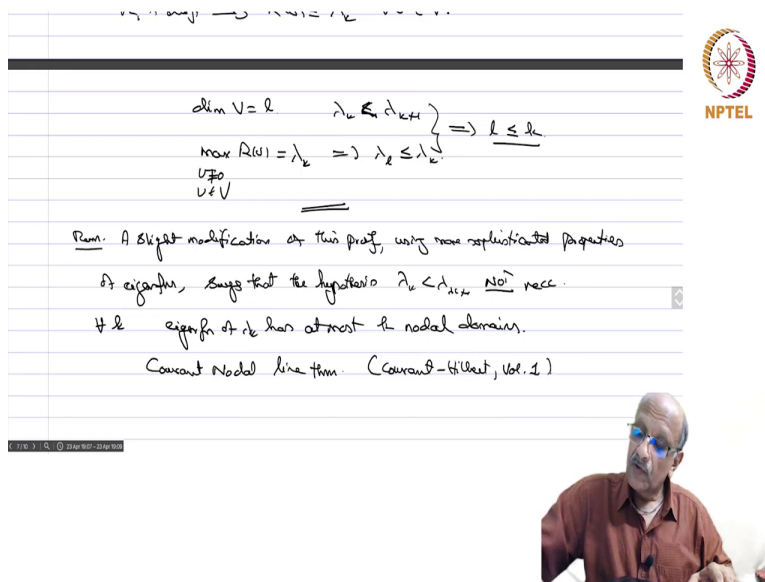 NPTEL
dim V = l λ_k < λ_{k+1}
max R(v) = λ_k ⟹ λ_l ≤ λ_k. } ⟹ l ≤ k
v≠0
v∈V
Rem. A slight modification of this proof, using more sophisticated properties
of eigenfns, says that the hypothesis λ_k < λ_{k+1} NOT necc.
∀ k eigenfn of λ_k has at most k nodal domains.
Courant Nodal line thm. (Courant-Hilbert, Vol. 1)
7/10 23 Apr 19:07 - 23 Apr 19:09